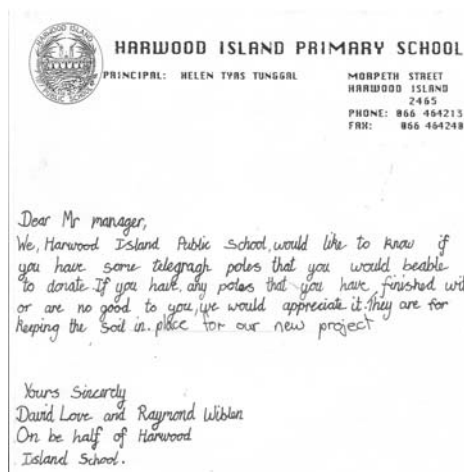 HARWOOD ISLAND PRIMARY SCHOOL
PRINCIPAL: HELEN TYAS TUNGGAL
MORPETH STREET
HARWOOD ISLAND
2465
PHONE: 066 464213
FAX: 066 464248
Dear Mr manager,
We, Harwood Island Public School, would like to know if
you have some telegragh poles that you would beable
to donate. If you have, any poles that you have, finished wit
or are no good to you, we would appreciate it. They are for
keeping the soil in. place for our new project
Yours Sincerly
David Love and Raymond Wiblen
On be half of Harwood
Island School.